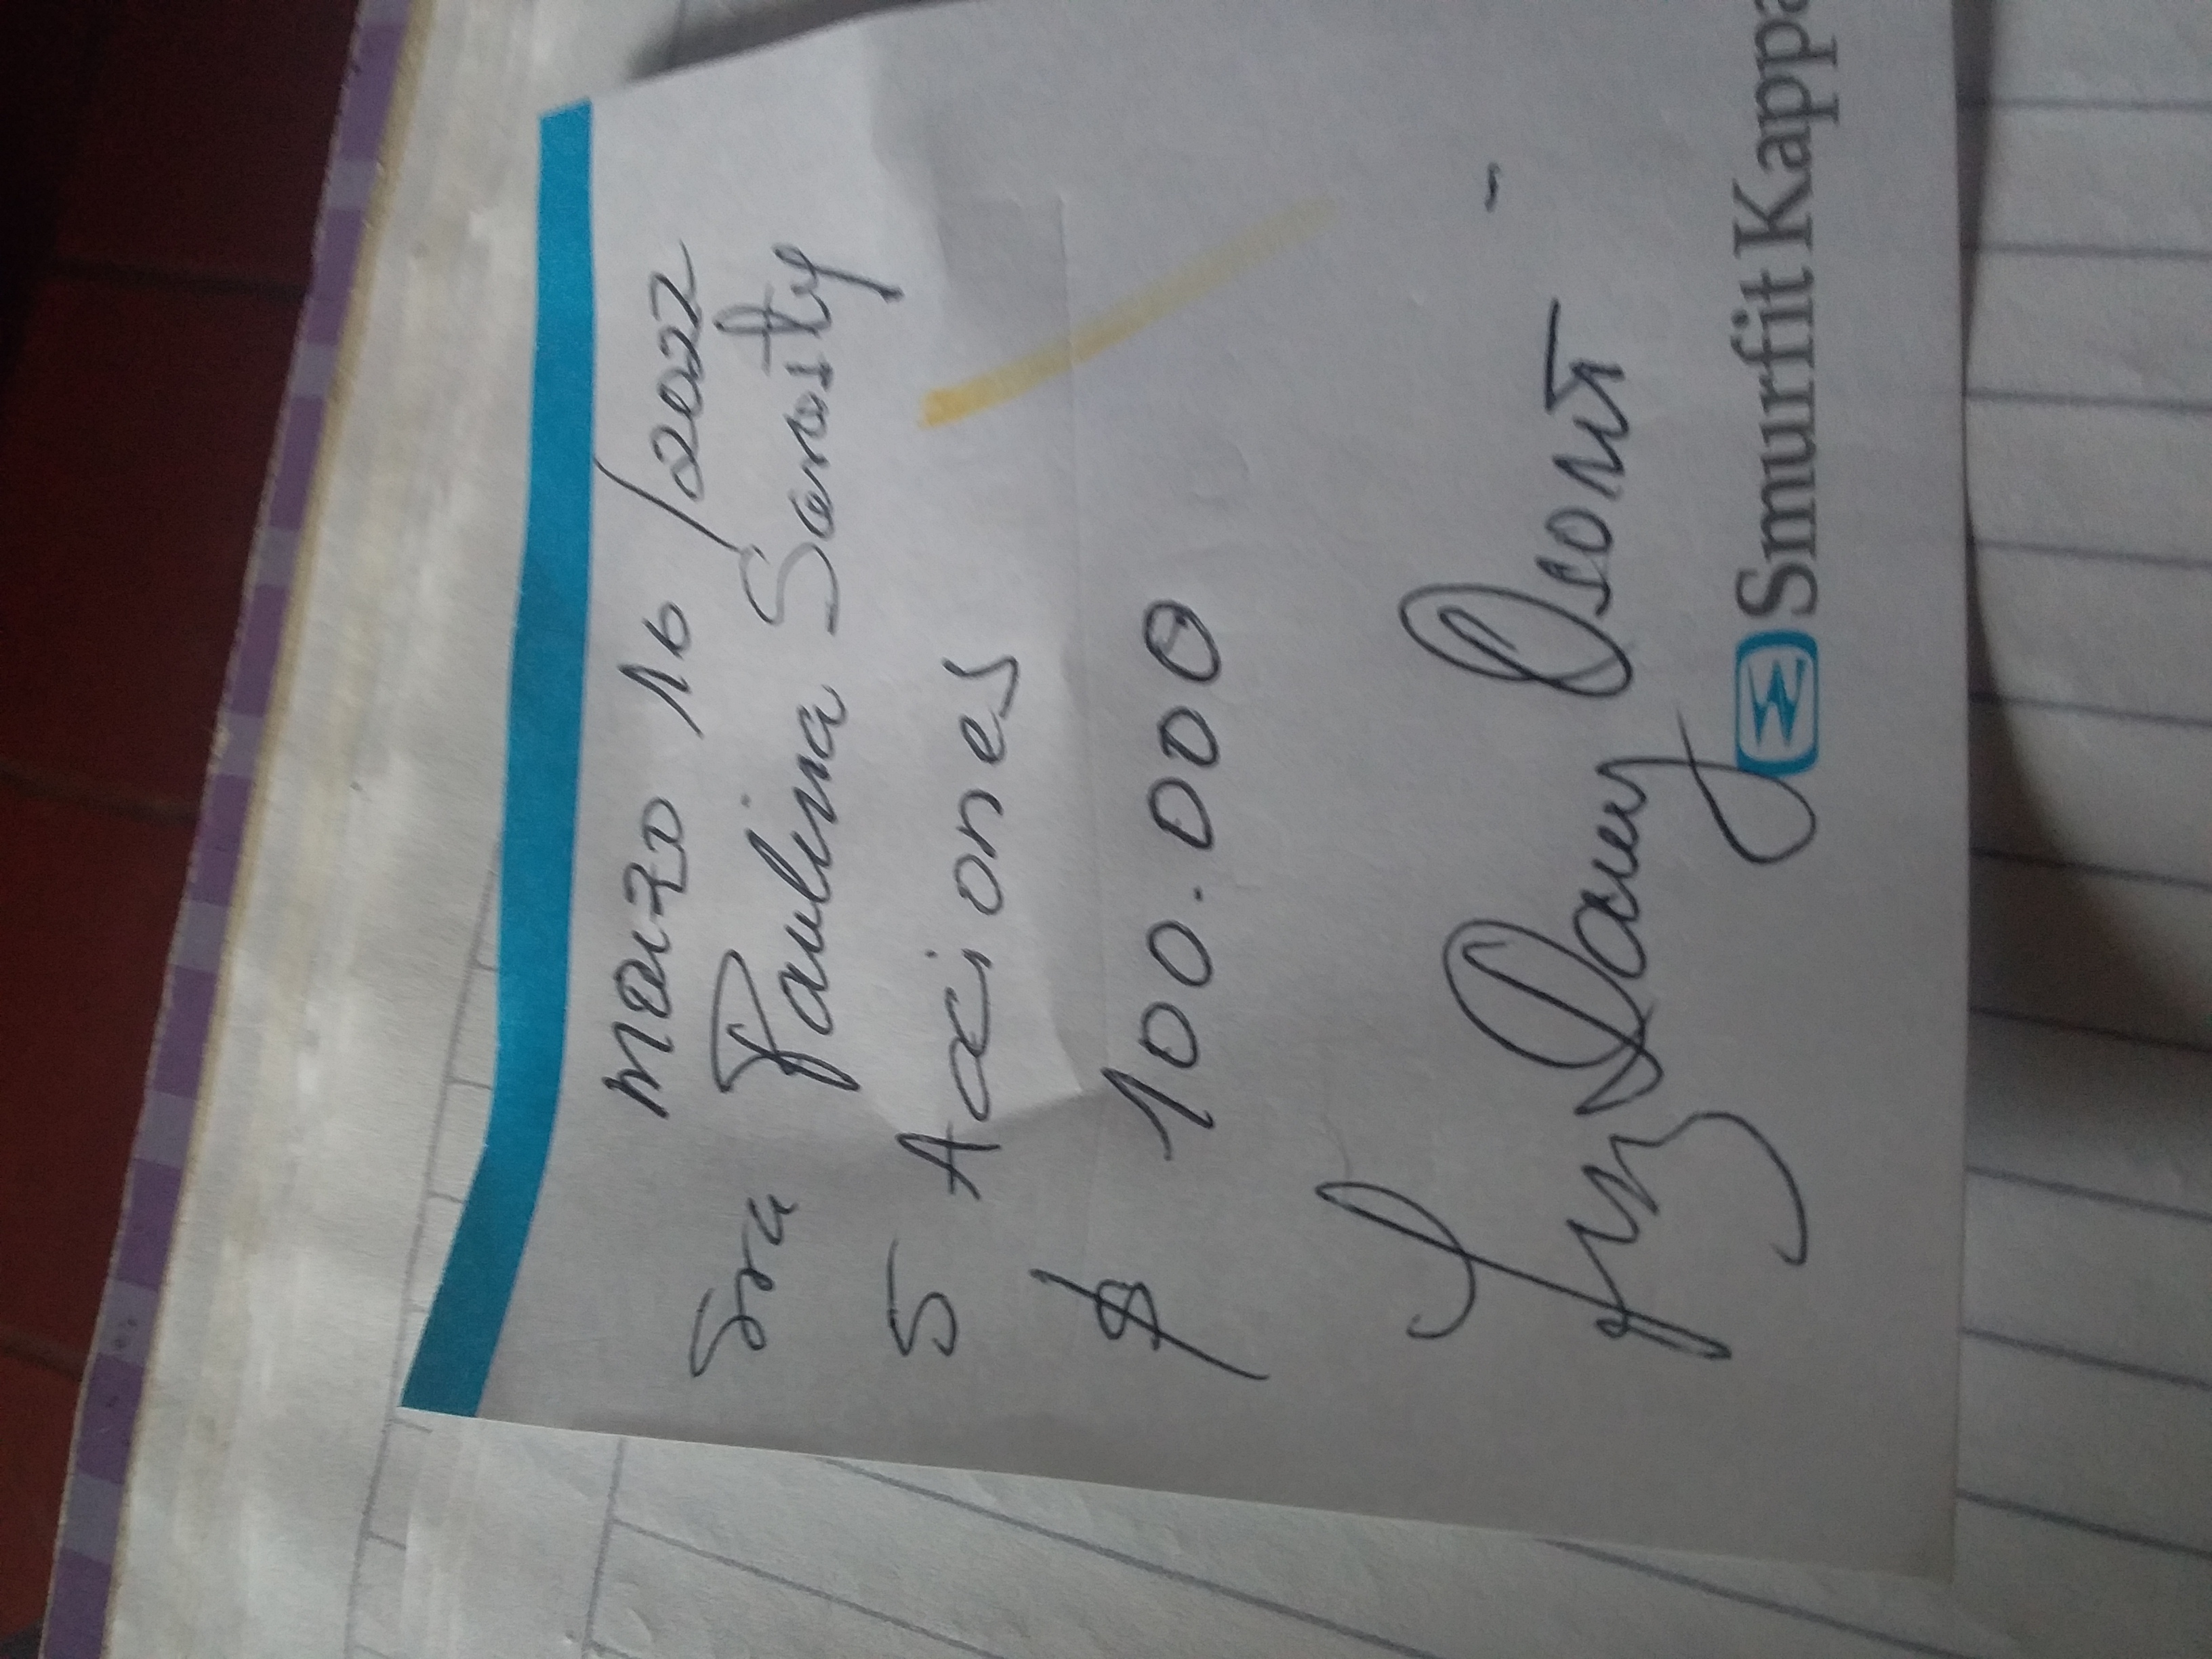 Marzo 16/2022
Sra Paulina Sarasty
5 Acciones
$ 100.000
Luz Dary Osorio
Smurfit Kappa